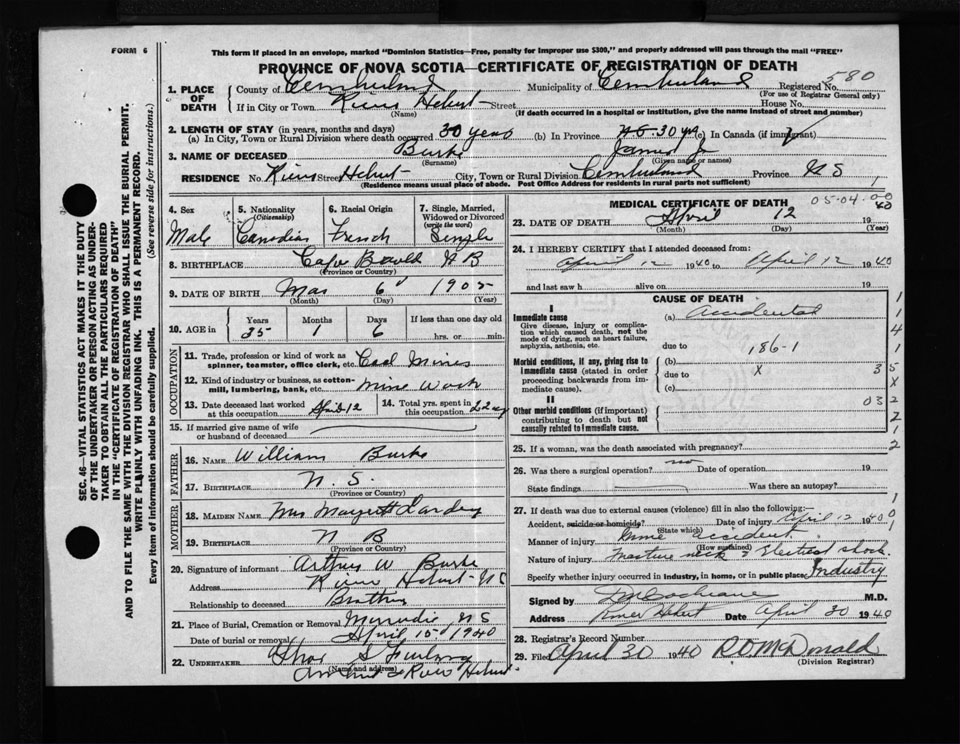 FORM 6
This form if placed in an envelope, marked "Dominion Statistics—Free, penalty for improper use $300," and properly addressed will pass through the mail "FREE"
PROVINCE OF NOVA SCOTIA—CERTIFICATE OF REGISTRATION OF DEATH
580
1. PLACE OF DEATH
County of Cumberland Municipality of Cumberland Registered No.
(For use of Registrar General only)
If in City or Town River Hebert Street House No.
(Name) (If death occurred in a hospital or institution, give the name instead of street and number)
2. LENGTH OF STAY (in years, months and days)
(a) In City, Town or Rural Division where death occurred 30 years (b) In Province N.S. 30 yrs (c) In Canada (if immigrant)
3. NAME OF DECEASED Burke James J.
(Surname) (Given name or names)
RESIDENCE No. River Street Hebert City, Town or Rural Division Cumberland Province N S
(Residence means usual place of abode. Post Office Address for residents in rural parts not sufficient)
4. Sex 5. Nationality (Citizenship) 6. Racial Origin 7. Single, Married, Widowed or Divorced (write the word)
Male Canadian French Single
8. BIRTHPLACE Cape Bauld N B
(Province or Country)
9. DATE OF BIRTH Mar 6 1905
(Month) (Day) (Year)
10. AGE in Years Months Days If less than one day old
35 1 6 hrs. or min.
OCCUPATION
11. Trade, profession or kind of work as spinner, teamster, office clerk, etc. Coal Mines
12. Kind of industry or business, as cotton-mill, lumbering, bank, etc. Mine Work
13. Date deceased last worked at this occupation April 12 14. Total yrs. spent in this occupation 22 yrs
15. If married give name of wife or husband of deceased
FATHER
16. NAME William Burke
17. BIRTHPLACE N. S.
(Province or Country)
MOTHER
18. MAIDEN NAME Mrs Margrett Landry
19. BIRTHPLACE N B
(Province or Country)
20. Signature of informant Arthur W Burke
Address River Hebert N S
Relationship to deceased Brother
21. Place of Burial, Cremation or Removal Minudie N S
Date of burial or removal April 15 1940
22. UNDERTAKER Thos S Furlong
(Name and address)
Amherst & River Hebert
MEDICAL CERTIFICATE OF DEATH 05-04-00
23. DATE OF DEATH April 12 19 40
(Month) (Day) (Year)
24. I HEREBY CERTIFY that I attended deceased from:
April 12 1940 to April 12 1940
and last saw h alive on 19
CAUSE OF DEATH
I
Immediate cause (a) Accidental
Give disease, injury or complication which caused death, not the mode of dying, such as heart failure, asphyxia, asthenia, etc.
due to 186-1
Morbid conditions, if any, giving rise to immediate cause (stated in order proceeding backwards from immediate cause).
(b) X
due to
(c)
II
Other morbid conditions (if important) contributing to death but not causally related to immediate cause.
25. If a woman, was the death associated with pregnancy?
26. Was there a surgical operation? no Date of operation 19
State findings Was there an autopsy?
27. If death was due to external causes (violence) fill in also the following:—
Accident, suicide or homicide? Date of injury April 12 1940
(State which)
Manner of injury Mine accident
(How sustained)
Nature of injury Fracture neck & Electrical shock
Specify whether injury occurred in industry, in home, or in public place Industry
Signed by D M Cochrane M.D.
Address River Hebert Date April 30 1940
28. Registrar's Record Number
29. Filed April 30 1940 R D McDonald
(Division Registrar)
SEC. 46—VITAL STATISTICS ACT MAKES IT THE DUTY OF THE UNDERTAKER OR PERSON ACTING AS UNDERTAKER TO OBTAIN ALL THE PARTICULARS REQUIRED IN THE "CERTIFICATE OF REGISTRATION OF DEATH" AND TO FILE THE SAME WITH THE DIVISION REGISTRAR WHO SHALL ISSUE THE BURIAL PERMIT.
WRITE PLAINLY WITH UNFADING INK. THIS IS A PERMANENT RECORD.
Every item of information should be carefully supplied. (See reverse side for instructions.)